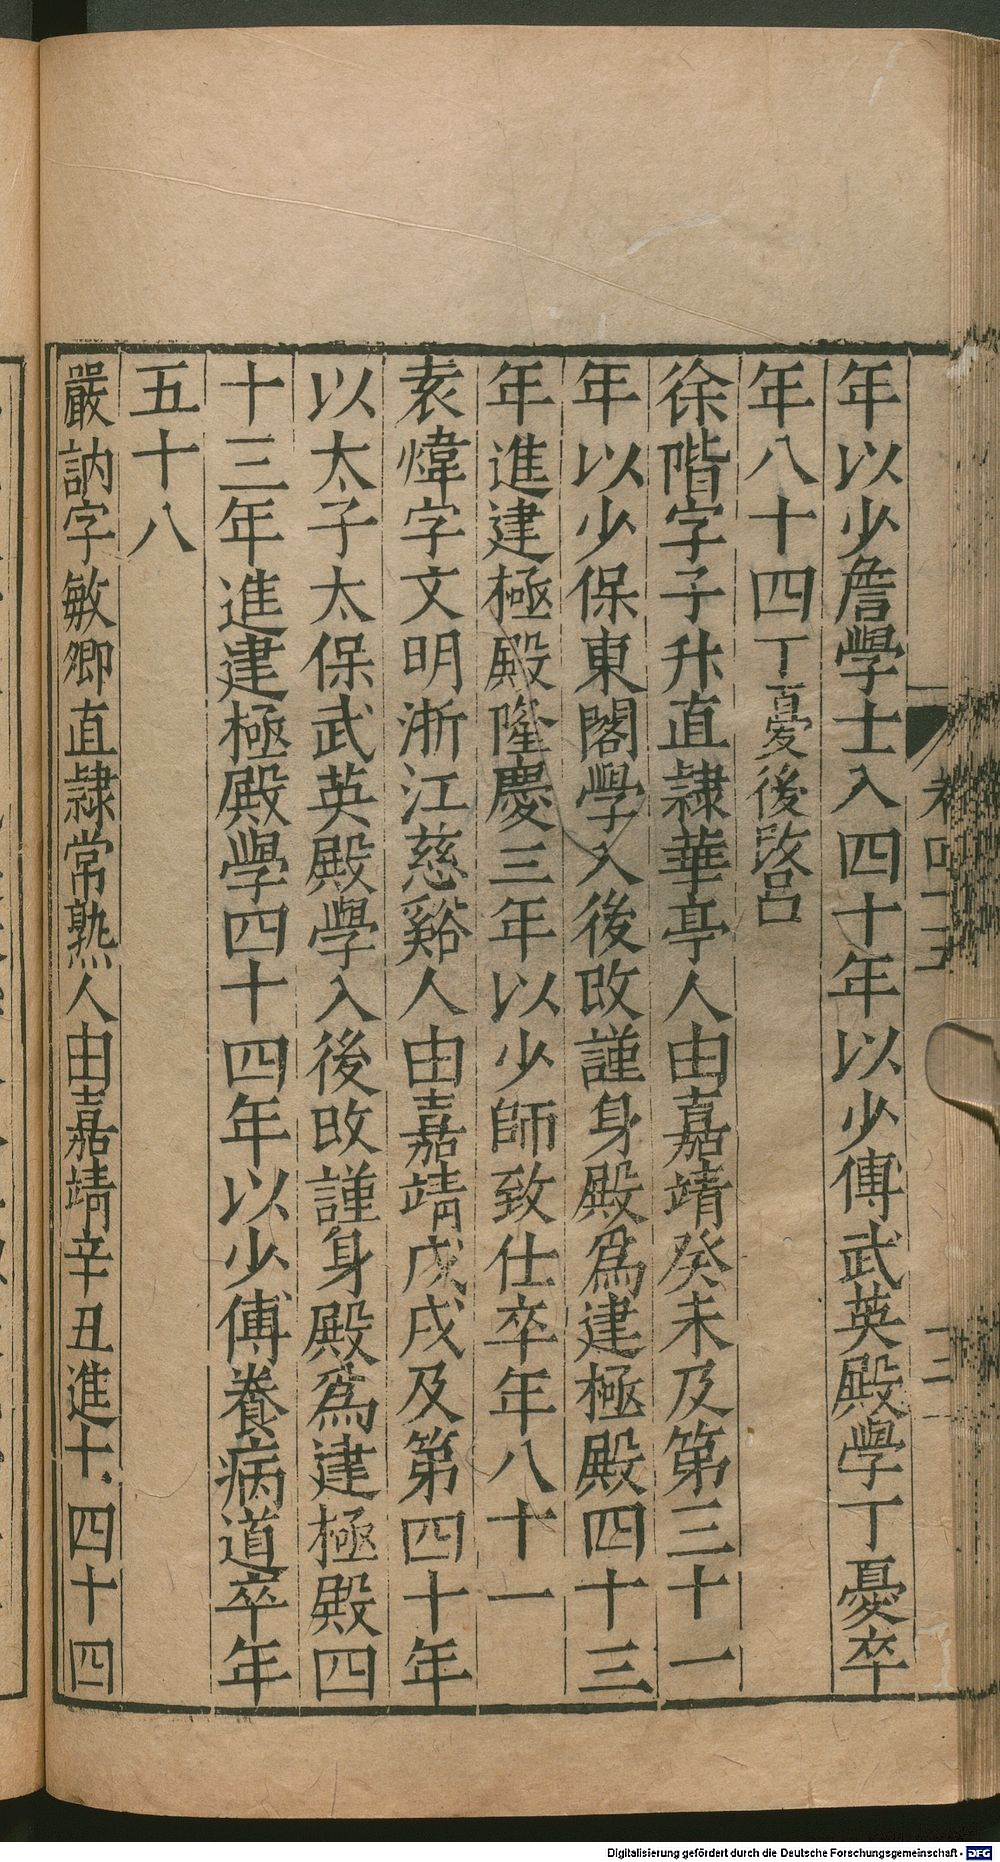 年以少詹學士入四十年以少傅武英殿學丁憂卒
年八十四丁憂後啓
徐階字子升直隸華亭人由嘉靖癸未及第三十一
年以少保東閣學入後改謹身殿爲建極殿四十三
年進建極殿隆慶三年以少師致仕卒年八十一
袁煒字文明浙江慈谿人由嘉靖戊戌及第四十年
以太子太保武英殿學入後改謹身殿爲建極殿四
十三年進建極殿學四十四年以少傅養病道卒年
五十八
嚴訥字敏卿直隸常熟人由嘉靖辛丑進士四十四
Digitalisierung gefördert durch die Deutsche Forschungsgemeinschaft - DFG